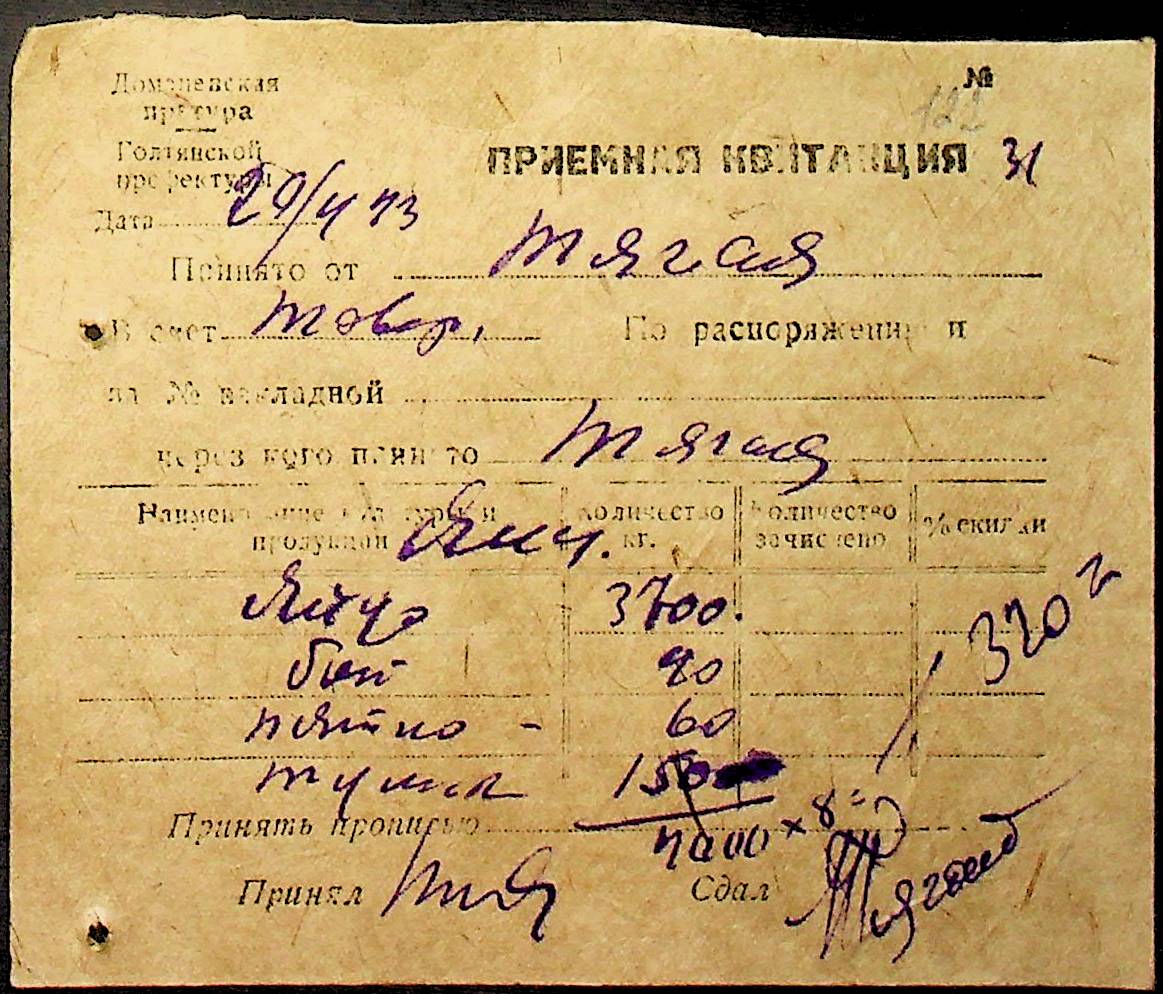 №
122
Доманевская
претура
Голтянской
префектуры
ПРИЕМНАЯ КВИТАНЦИЯ 31
Дата 29/4 43
Принято от Тягая
В счет товар. По распоряжению и
на № накладной
через кого принято Тягая
Наименование культуры и
продукции Яиц.
Количество
кг.
Количество
зачислено
Яйцо 3700.
бой 90
пятно - 60
тушка 150
320
Принять прописью 4000 х 8
Принял Сдал